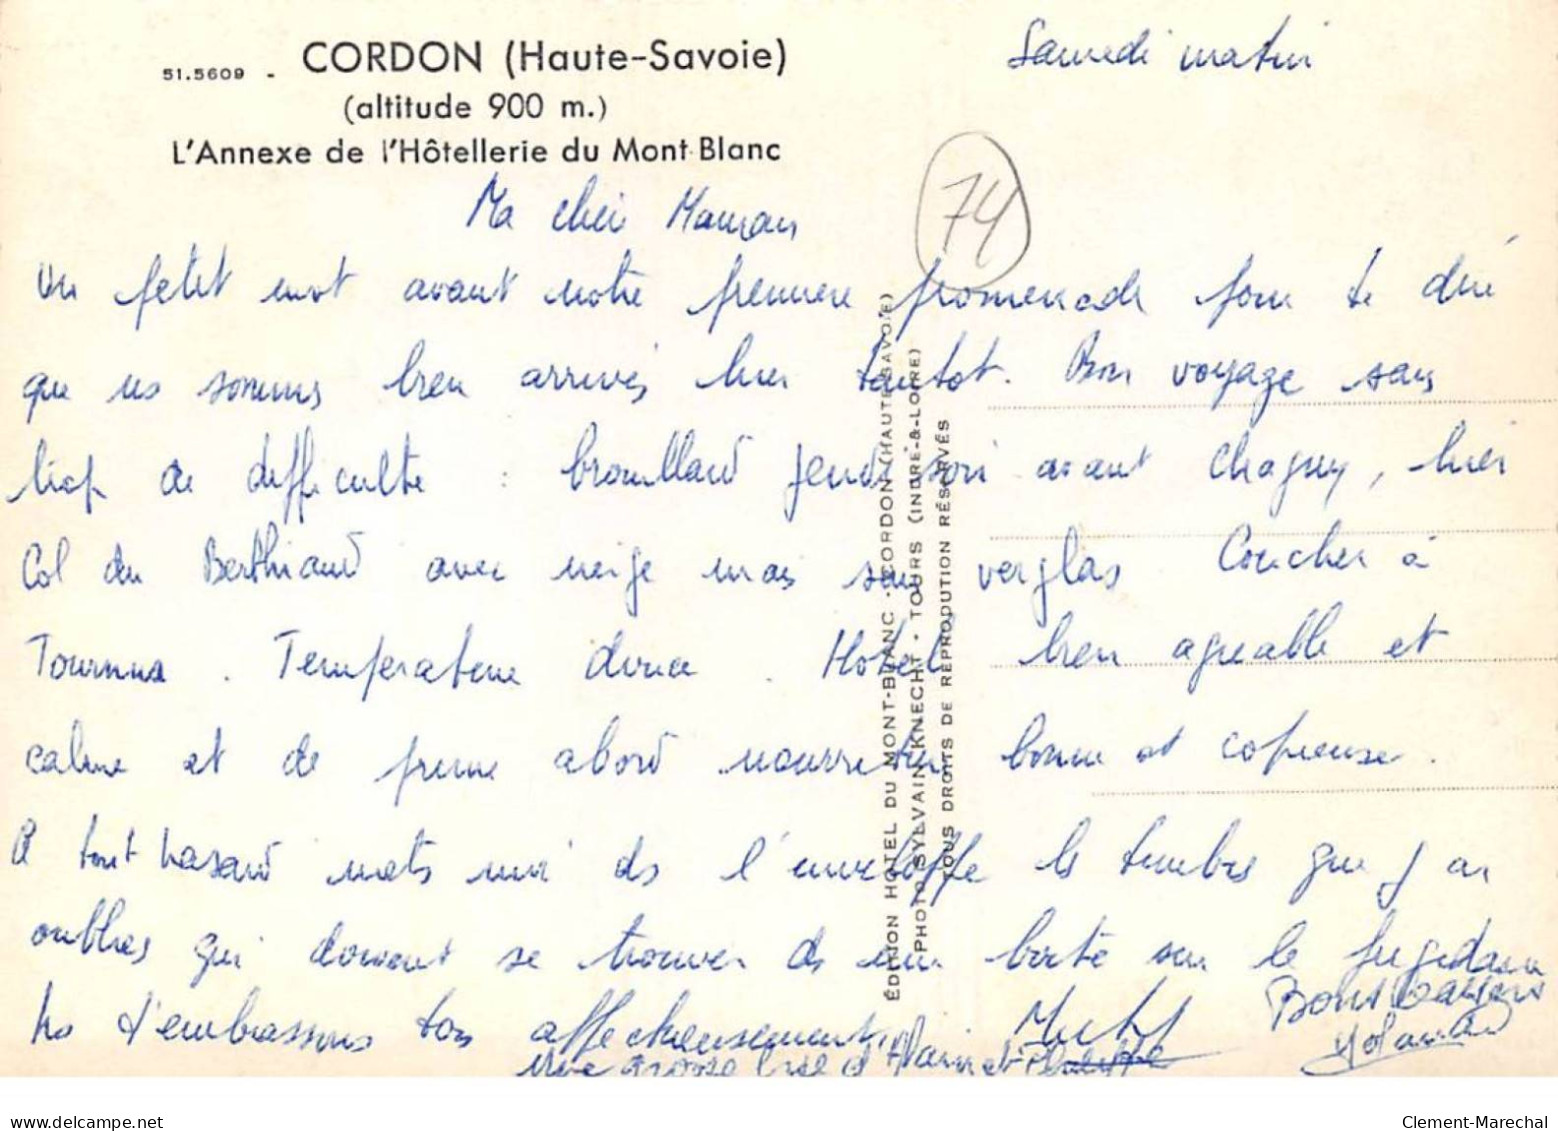 51.5609 - CORDON (Haute-Savoie)
(altitude 900 m.)
L'Annexe de l'Hôtellerie du Mont-Blanc
Samedi matin
74
Ma cher Maman
Un petit mot avant notre premiere promenade pour te dire
que ns sommes bien arrivés hier tantot. Bon voyage sans
trop de difficulte : brouillard jeudi soir avant Chagny, hier
Col du Berthiand avec neige mais sans verglas Coucher à
Tournus. Temperature douce. Hotel bien agreable et
calme et de prime abord nourriture bonne et copieuse.
A tout hasard mets moi ds l'enveloppe les timbres que j'ai
oublies qui doivent se trouver ds une boite sur le frigidaire
ns t'embrassons tous affectueusement.
Bons baisers
Yolande
une grosse bise d'Alain et
ÉDITION HOTEL DU MONT-BLANC · CORDON (HAUTE-SAVOIE)
PHOTO SYLVAIN KNECHT · TOURS (INDRE-&-LOIRE)
TOUS DROITS DE REPRODUCTION RÉSERVÉS
www.delcampe.net
Clement-Marechal